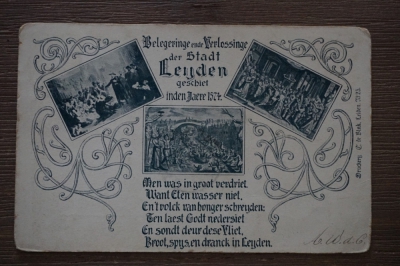 Belegeringe ende Verlossinge
der Stadt
Leyden
geschiet
inden Jaere 1574.
Men was in groot verdriet
Want Eten wasser niet,
En't volck van honger schreyden:
Ten laest Godt nedersiet
En sondt deur dese Vliet,
Broot, spys, en dranck in Leyden.